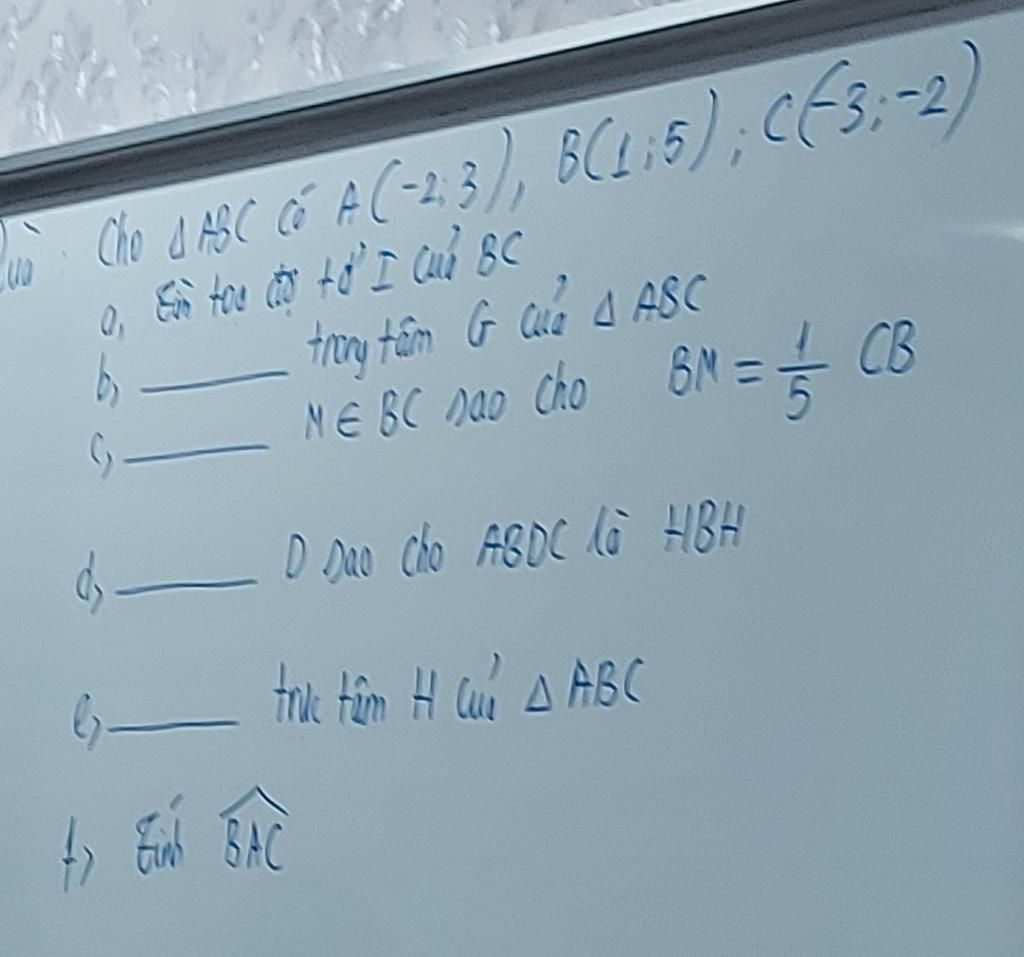 Cho Δ ABC có A(-2;3), B(1;5); C(-3;-2)
a, Tìm toạ độ tđ I của BC
b, ______ trọng tâm G của Δ ABC
c, ______ M ∈ BC sao cho BM = 1/5 CB
d, ______ D sao cho ABDC là HBH
e, ______ trực tâm H của Δ ABC
f, Tính \widehat{BAC}